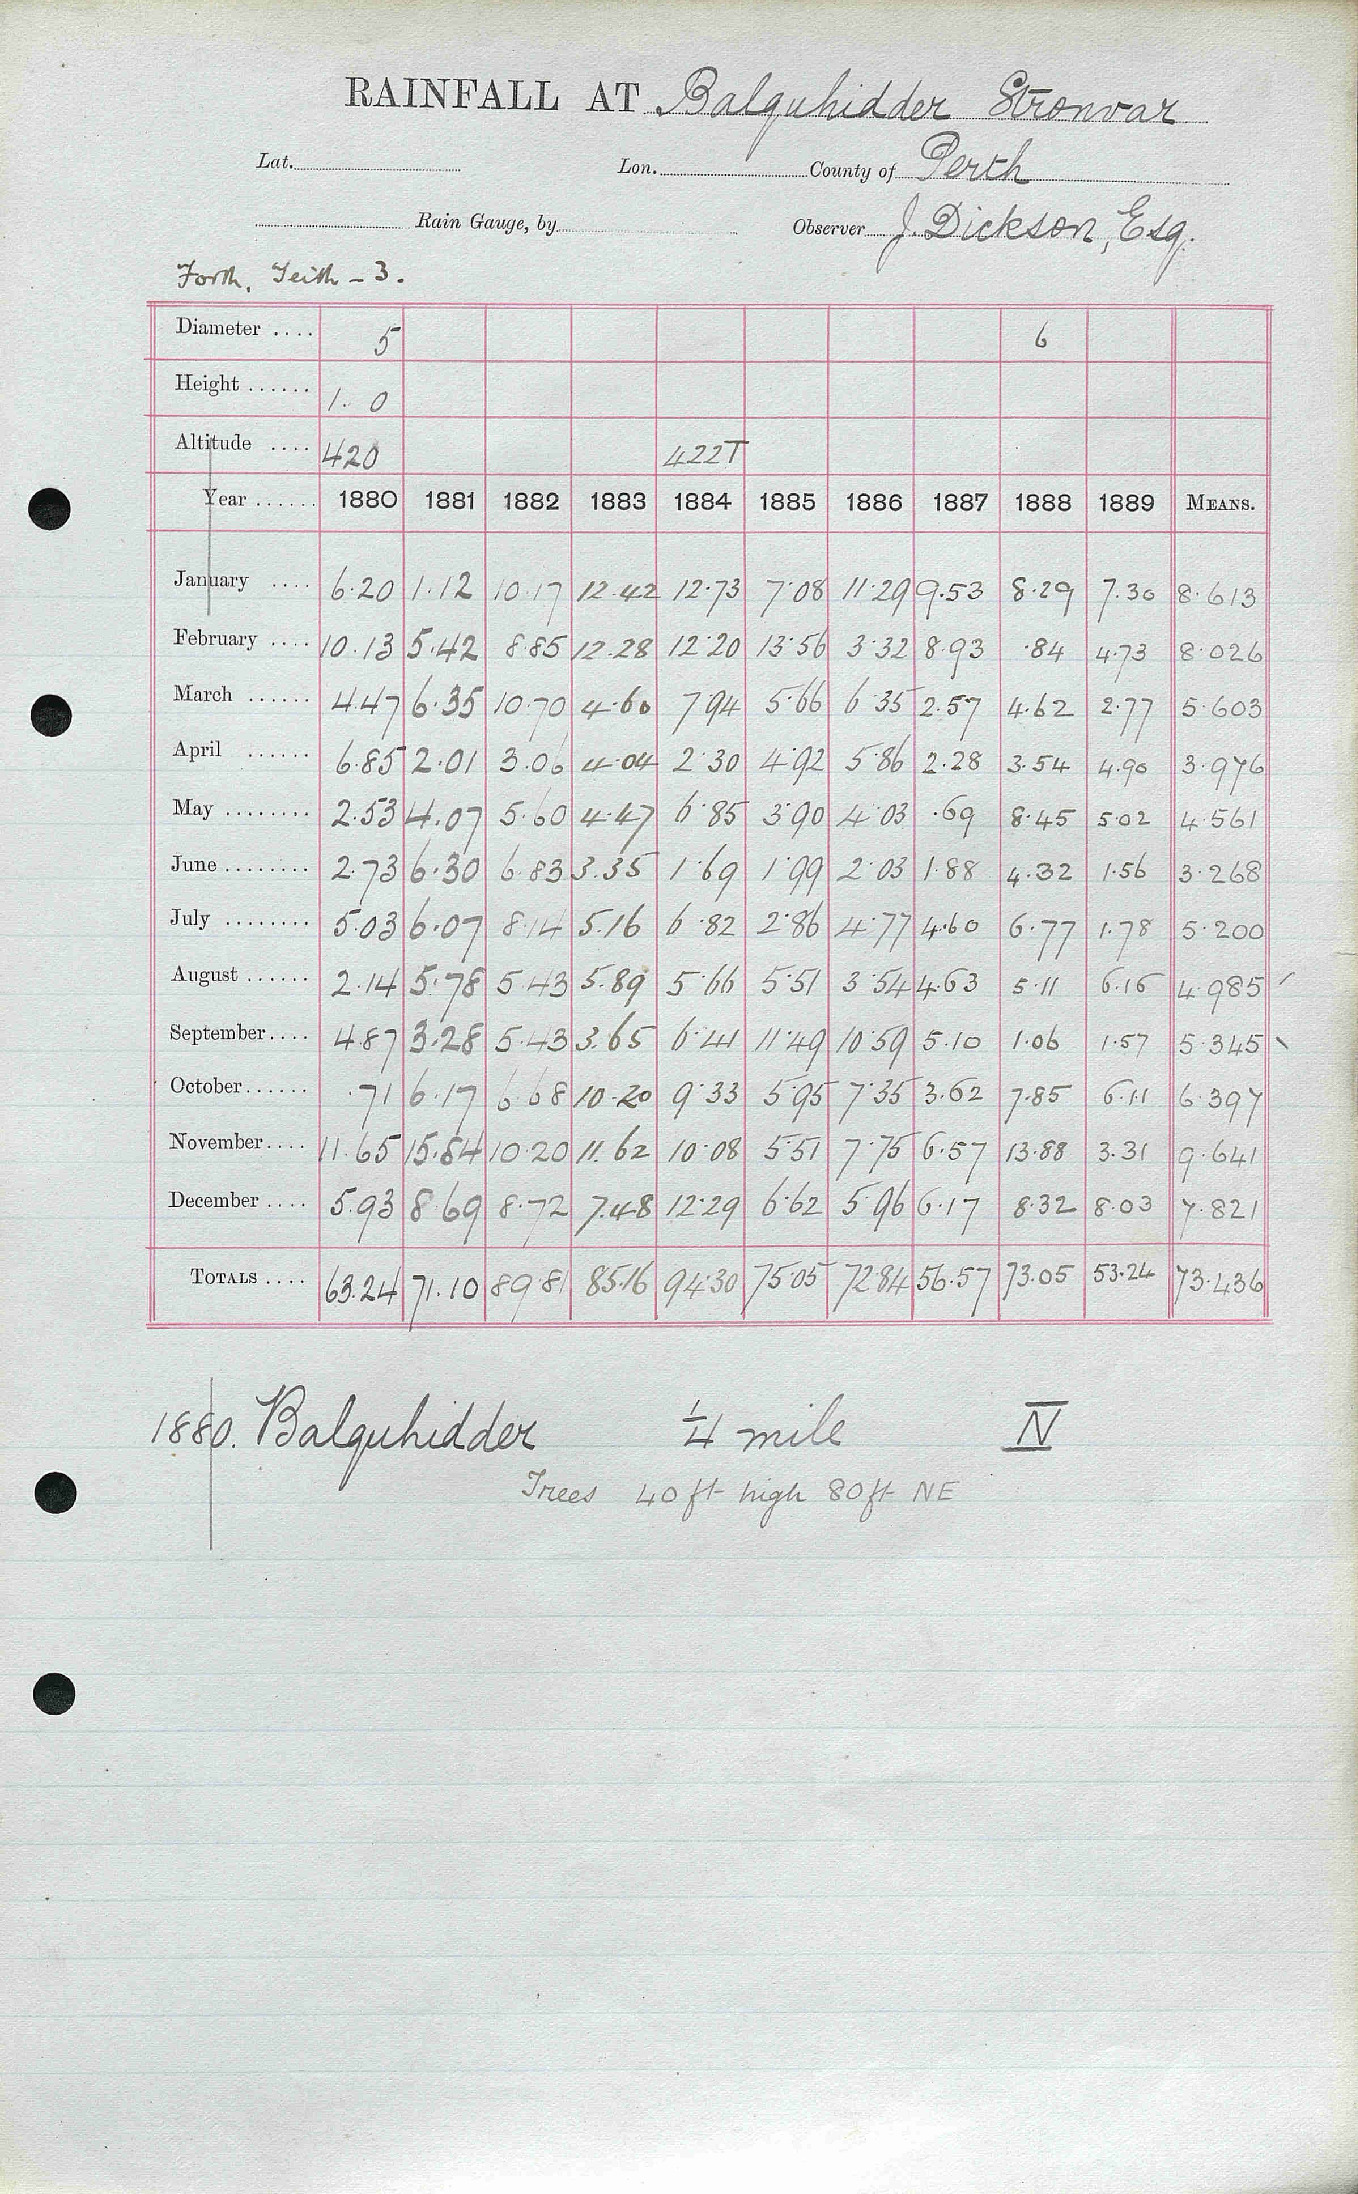 RAINFALL AT Balquhidder Stronvar
Lat. Lon. County of Perth
Rain Gauge, by Observer J. Dickson, Esq.
Forth, Teith - 3.
Diameter .... 5 6
Height ...... 1. 0
Altitude .... 420 422T
Year ...... 1880 1881 1882 1883 1884 1885 1886 1887 1888 1889 MEANS.
January .... 6.20 1.12 10.17 12.42 12.73 7.08 11.29 9.53 8.29 7.30 8.613
February .... 10.13 5.42 8.85 12.28 12.20 13.56 3.32 8.93 .84 4.73 8.026
March ...... 4.47 6.35 10.70 4.60 7.94 5.66 6.35 2.57 4.62 2.77 5.603
April ...... 6.85 2.01 3.06 4.04 2.30 4.92 5.86 2.28 3.54 4.90 3.976
May ........ 2.53 4.07 5.60 4.47 6.85 3.90 4.03 .69 8.45 5.02 4.561
June ........ 2.73 6.30 6.83 3.35 1.69 1.99 2.03 1.88 4.32 1.56 3.268
July ........ 5.03 6.07 8.14 5.16 6.82 2.86 4.77 4.60 6.77 1.78 5.200
August ...... 2.14 5.78 5.43 5.89 5.66 5.51 3.54 4.63 5.11 6.16 4.985
September.... 4.87 3.28 5.43 3.65 6.41 11.49 10.59 5.10 1.06 1.57 5.345
October...... .71 6.17 6.68 10.20 9.33 5.95 7.35 3.62 7.85 6.11 6.397
November.... 11.65 15.84 10.20 11.62 10.08 5.51 7.75 6.57 13.88 3.31 9.641
December .... 5.93 8.69 8.72 7.48 12.29 6.62 5.96 6.17 8.32 8.03 7.821
TOTALS .... 63.24 71.10 89.81 85.16 94.30 75.05 72.84 56.57 73.05 53.24 73.436
1880. Balquhidder 1/4 mile N
Trees 40 ft high 80 ft NE